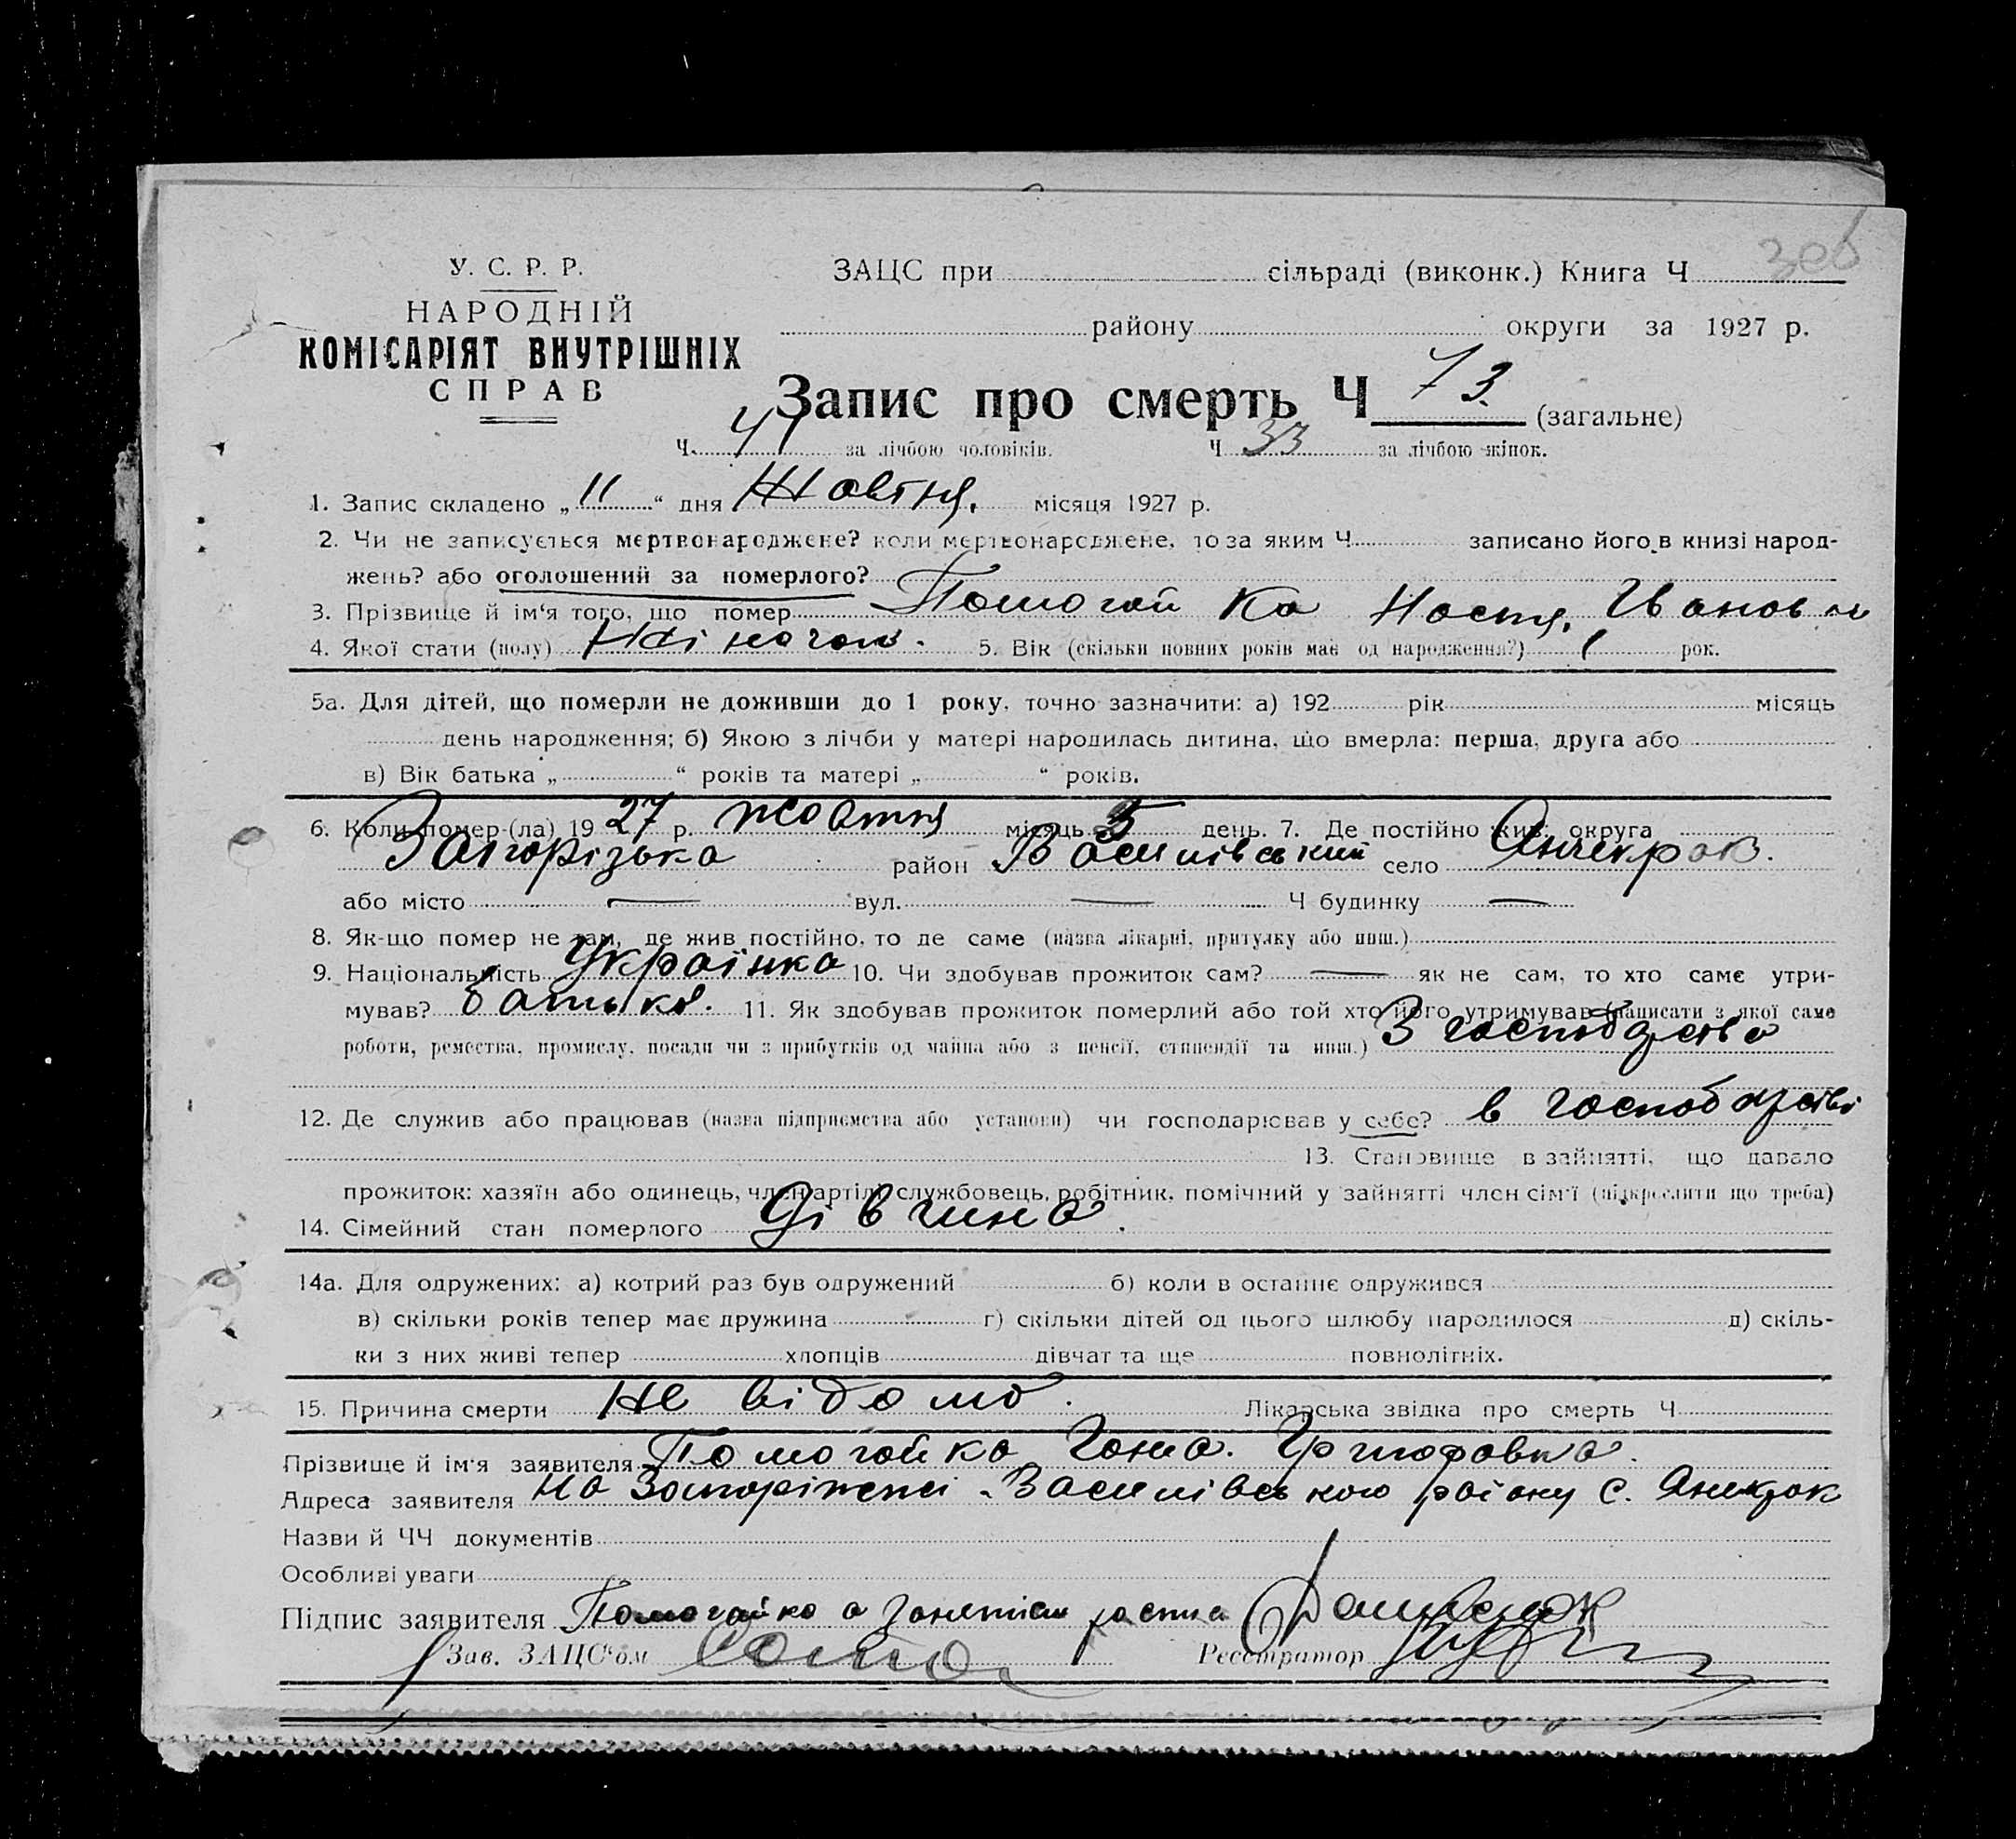 306
У. С. Р. Р.
НАРОДНІЙ
КОМІСАРІЯТ ВНУТРІШНІХ
СПРАВ
ЗАЦС при сільраді (виконк.) Книга Ч
району округи за 1927 р.
Запис про смерть Ч 73 (загальне)
Ч. 41 за лічбою чоловіків. Ч 33 за лічбою жінок.
1. Запис складено „ 11 “ дня Жовтня. місяця 1927 р.
2. Чи не записується мертвонароджене? коли мертвонароджене, то за яким Ч записано його в книзі народ-
жень? або оголошений за померлого?
3. Прізвище й ім‘я того, що помер Помогайка Настя,
4. Якої стати (полу) 5. Вік (скільки повних років має од народження?) 1 рок.
5а. Для дітей, що померли не доживши до 1 року, точно зазначити: а) 192 рік місяць
день народження; б) Якою з лічби у матері народилась дитина, що вмерла: перша, друга або
в) Вік батька „ “ років та матері „ “ років.
6. Коли помер (ла) 1927 р. жовтня місяць 5 день. 7. Де постійно жив: округа
Запорізька район Василівський село Янчекрак.
або місто — вул. — Ч будинку —
8. Як-що помер не там, де жив постійно, то де саме (назва лікарні, притулку або инш.)
9. Національність Українка 10. Чи здобував прожиток сам? — як не сам, то хто саме утри-
мував? батько. 11. Як здобував прожиток померлий або той хто його утримував (написати з якої саме
роботи, ремества, промислу, посади чи з прибутків од майна або з пенсії, стипендії та инш.) З господарства
12. Де служив або працював (назва підприємства або установи) чи господарював у себе? в господарстві
13. Становище в зайнятті, що давало
прожиток: хазяїн або одинець, член артілі, службовець, робітник, помічний у зайнятті член сім‘ї (підкреслити що треба)
14. Сімейний стан померлого Дівчина.
14а. Для одружених: а) котрий раз був одружений б) коли в останнє одружився
в) скільки років тепер має дружина г) скільки дітей од цього шлюбу народилося д) скіль-
ки з них живі тепер хлопців дівчат та ще повнолітніх.
15. Причина смерти Не відомо. Лікарська звідка про смерть Ч
Прізвище й ім‘я заявителя Помогайка
Адреса заявителя на Запоріжжі Василівського району с. Янчекрак
Назви й ЧЧ документів
Особливі уваги
Підпис заявителя Помогайко а
Зав. ЗАЦС‘ом Реєстратор